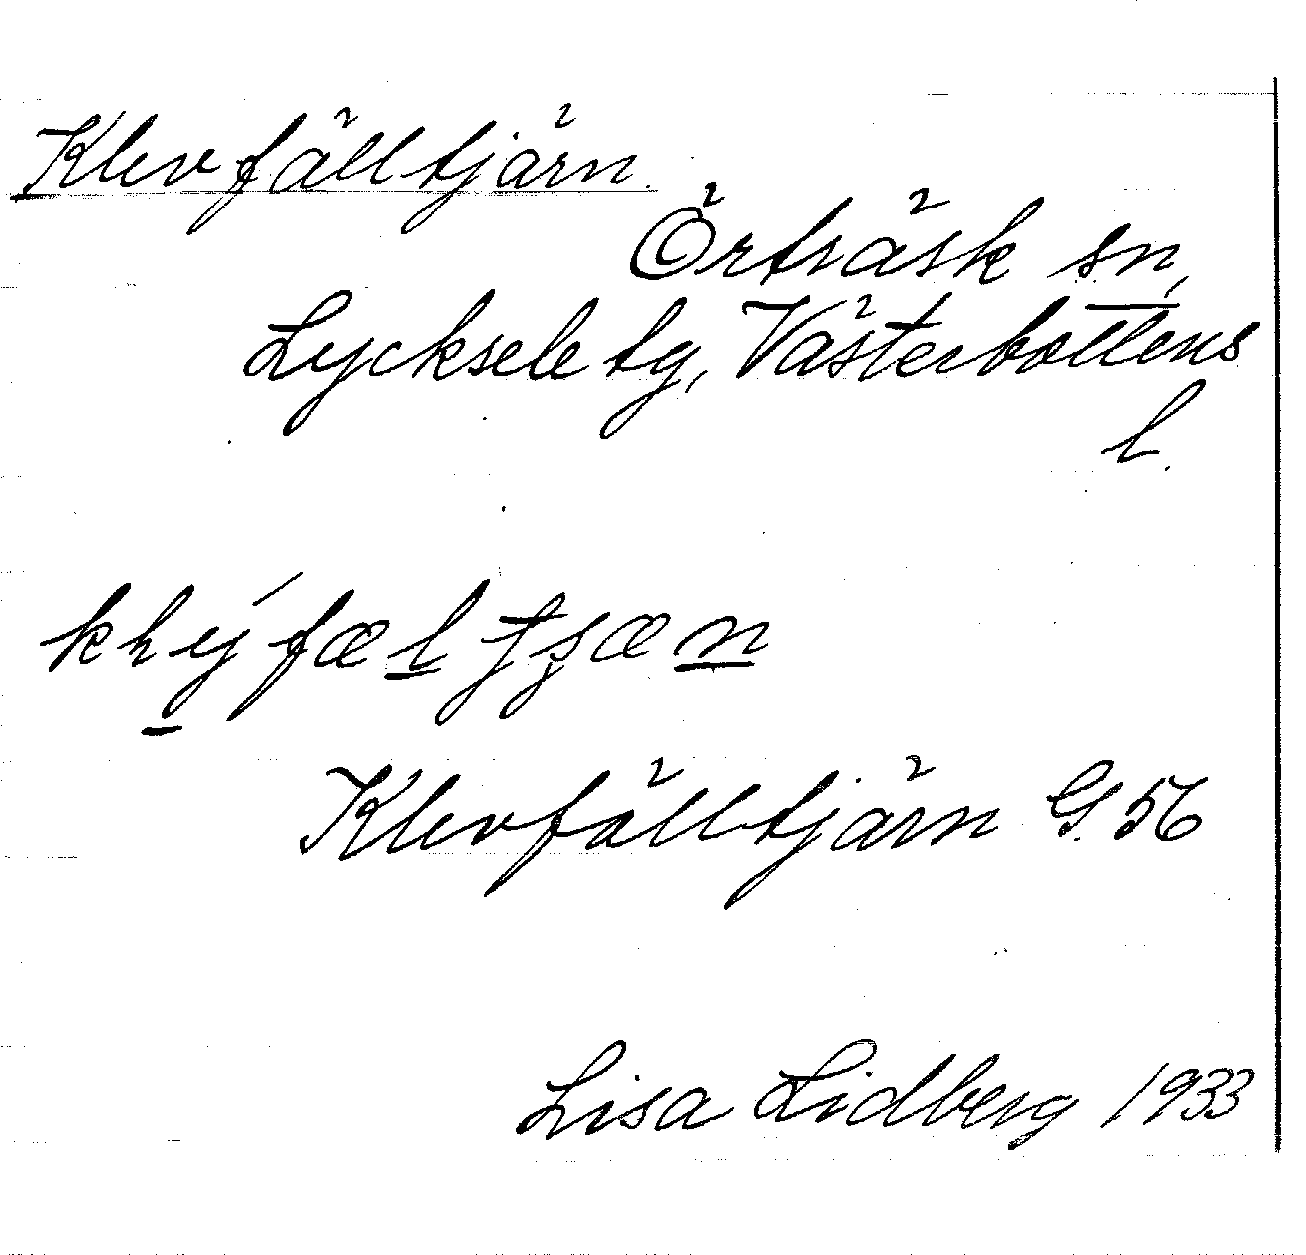 Klevfälltjärn.
Örträsk sn,
Lycksele tg, Västerbottens
l.
Klevfälltjärn G. 56
Lisa Lidberg 1933